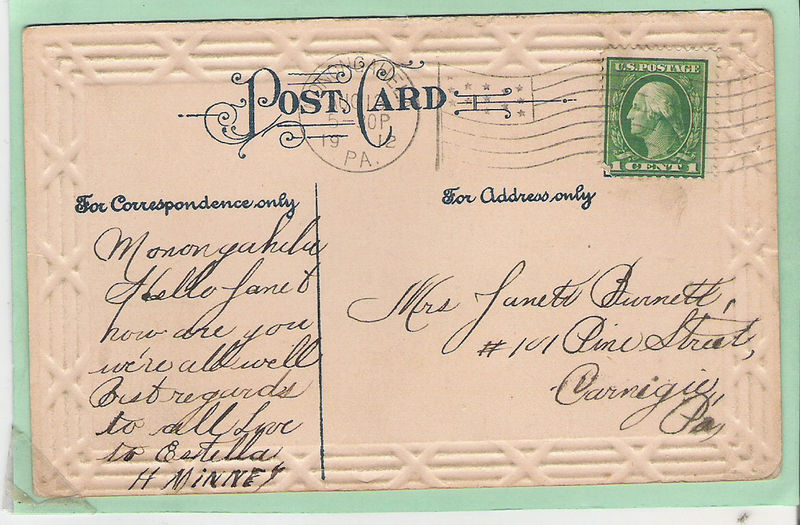 POST CARD
MONONGAHELA
5-30P
1912
PA.
U.S. POSTAGE
1 CENT 1
For Correspondence only
For Address only
Monongahela
Hello Janet
how are you
we're all well
Best regards
to all Love
to Estella
H MINNEY
Mrs Janett Burnett,
#101 Pine Street,
Carnegie,
Pa,